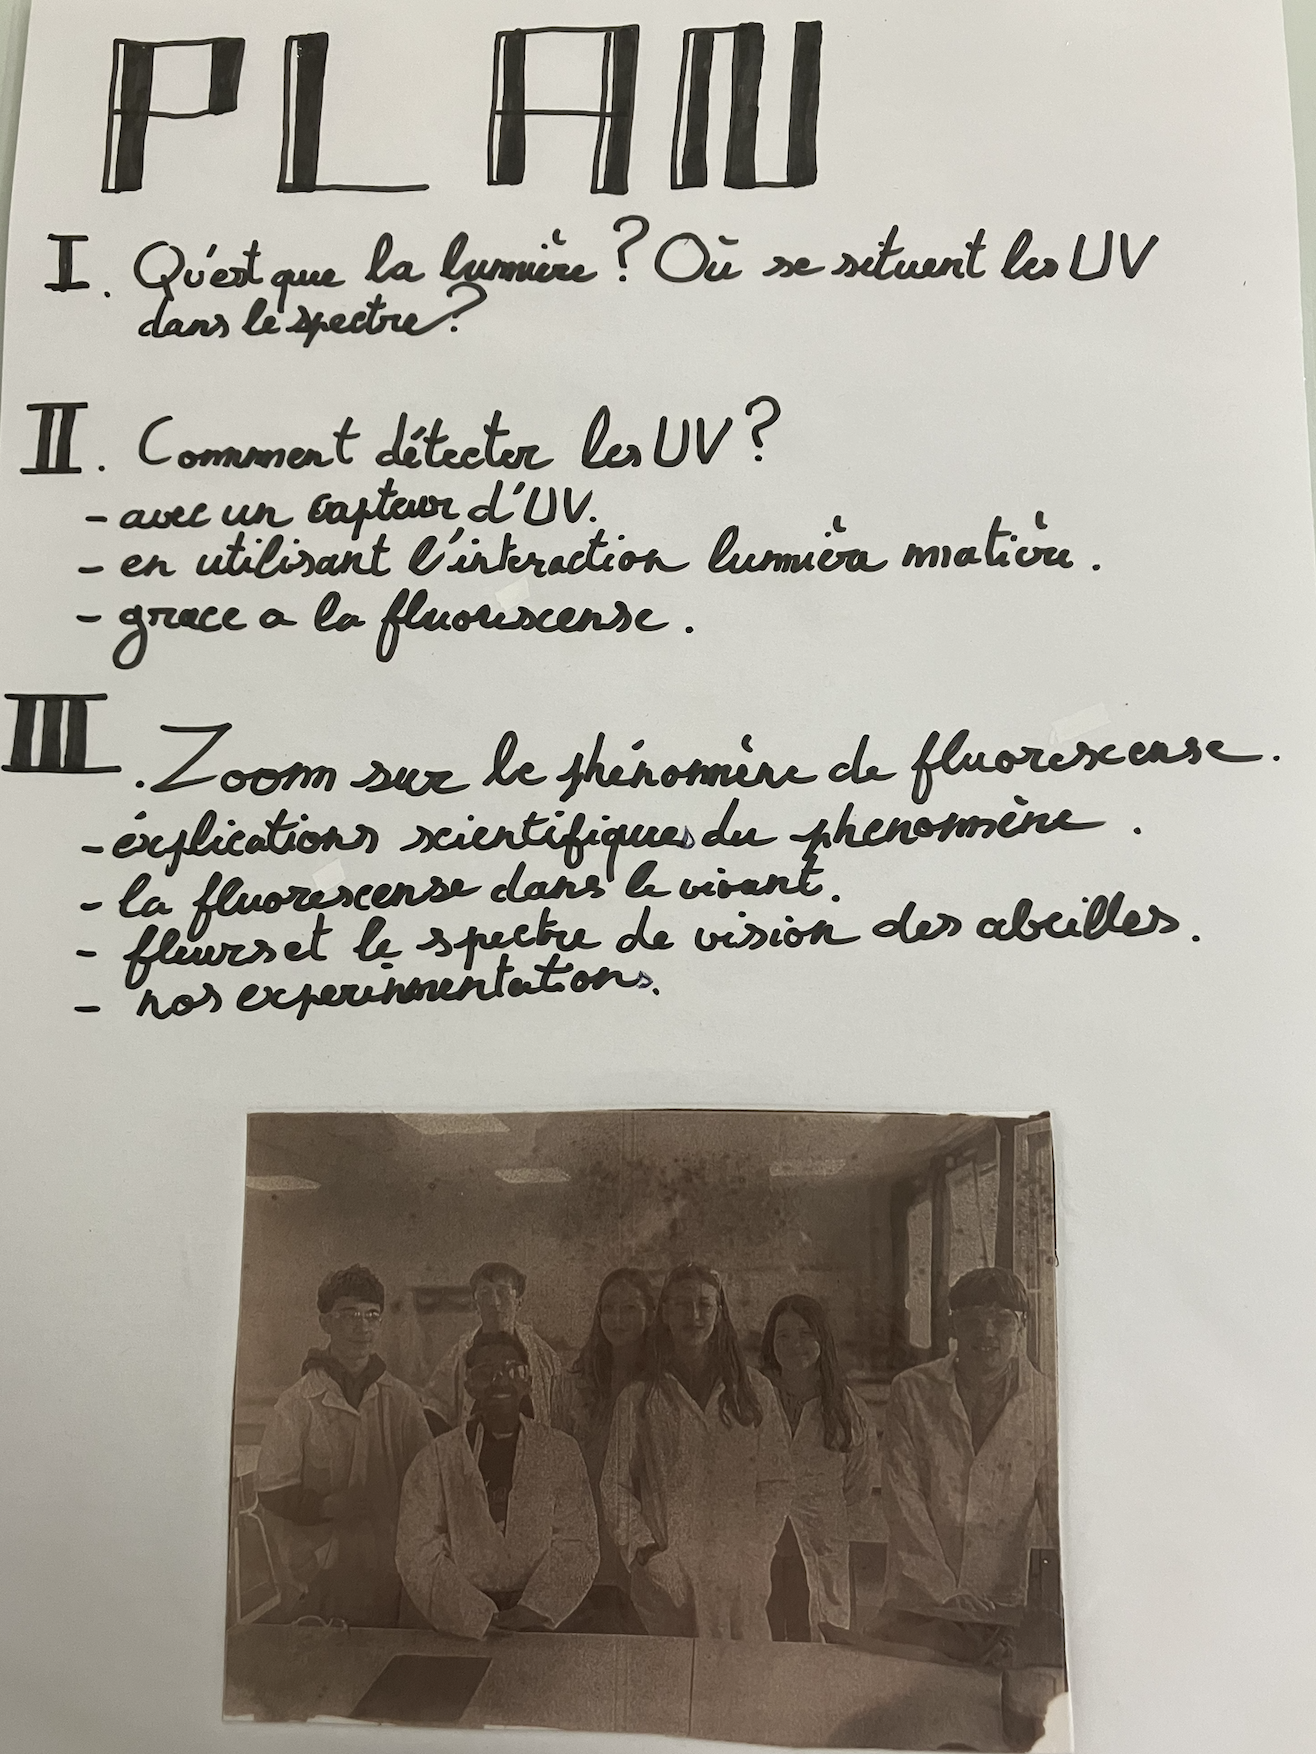 PLAN
I. Qu'est que la lumière ? Où se situent les UV
dans le spectre ?
II. Comment détecter les UV ?
- avec un capteur d'UV.
- en utilisant l'interaction lumièra matière.
- grace a la fluorescense.
III. Zoom sur le phénomène de fluorescense.
- éxplications scientifiques du phenomène.
- la fluorescense dans le vivant.
- fleurs et le spectre de vision des abeilles.
- nos experimentations.